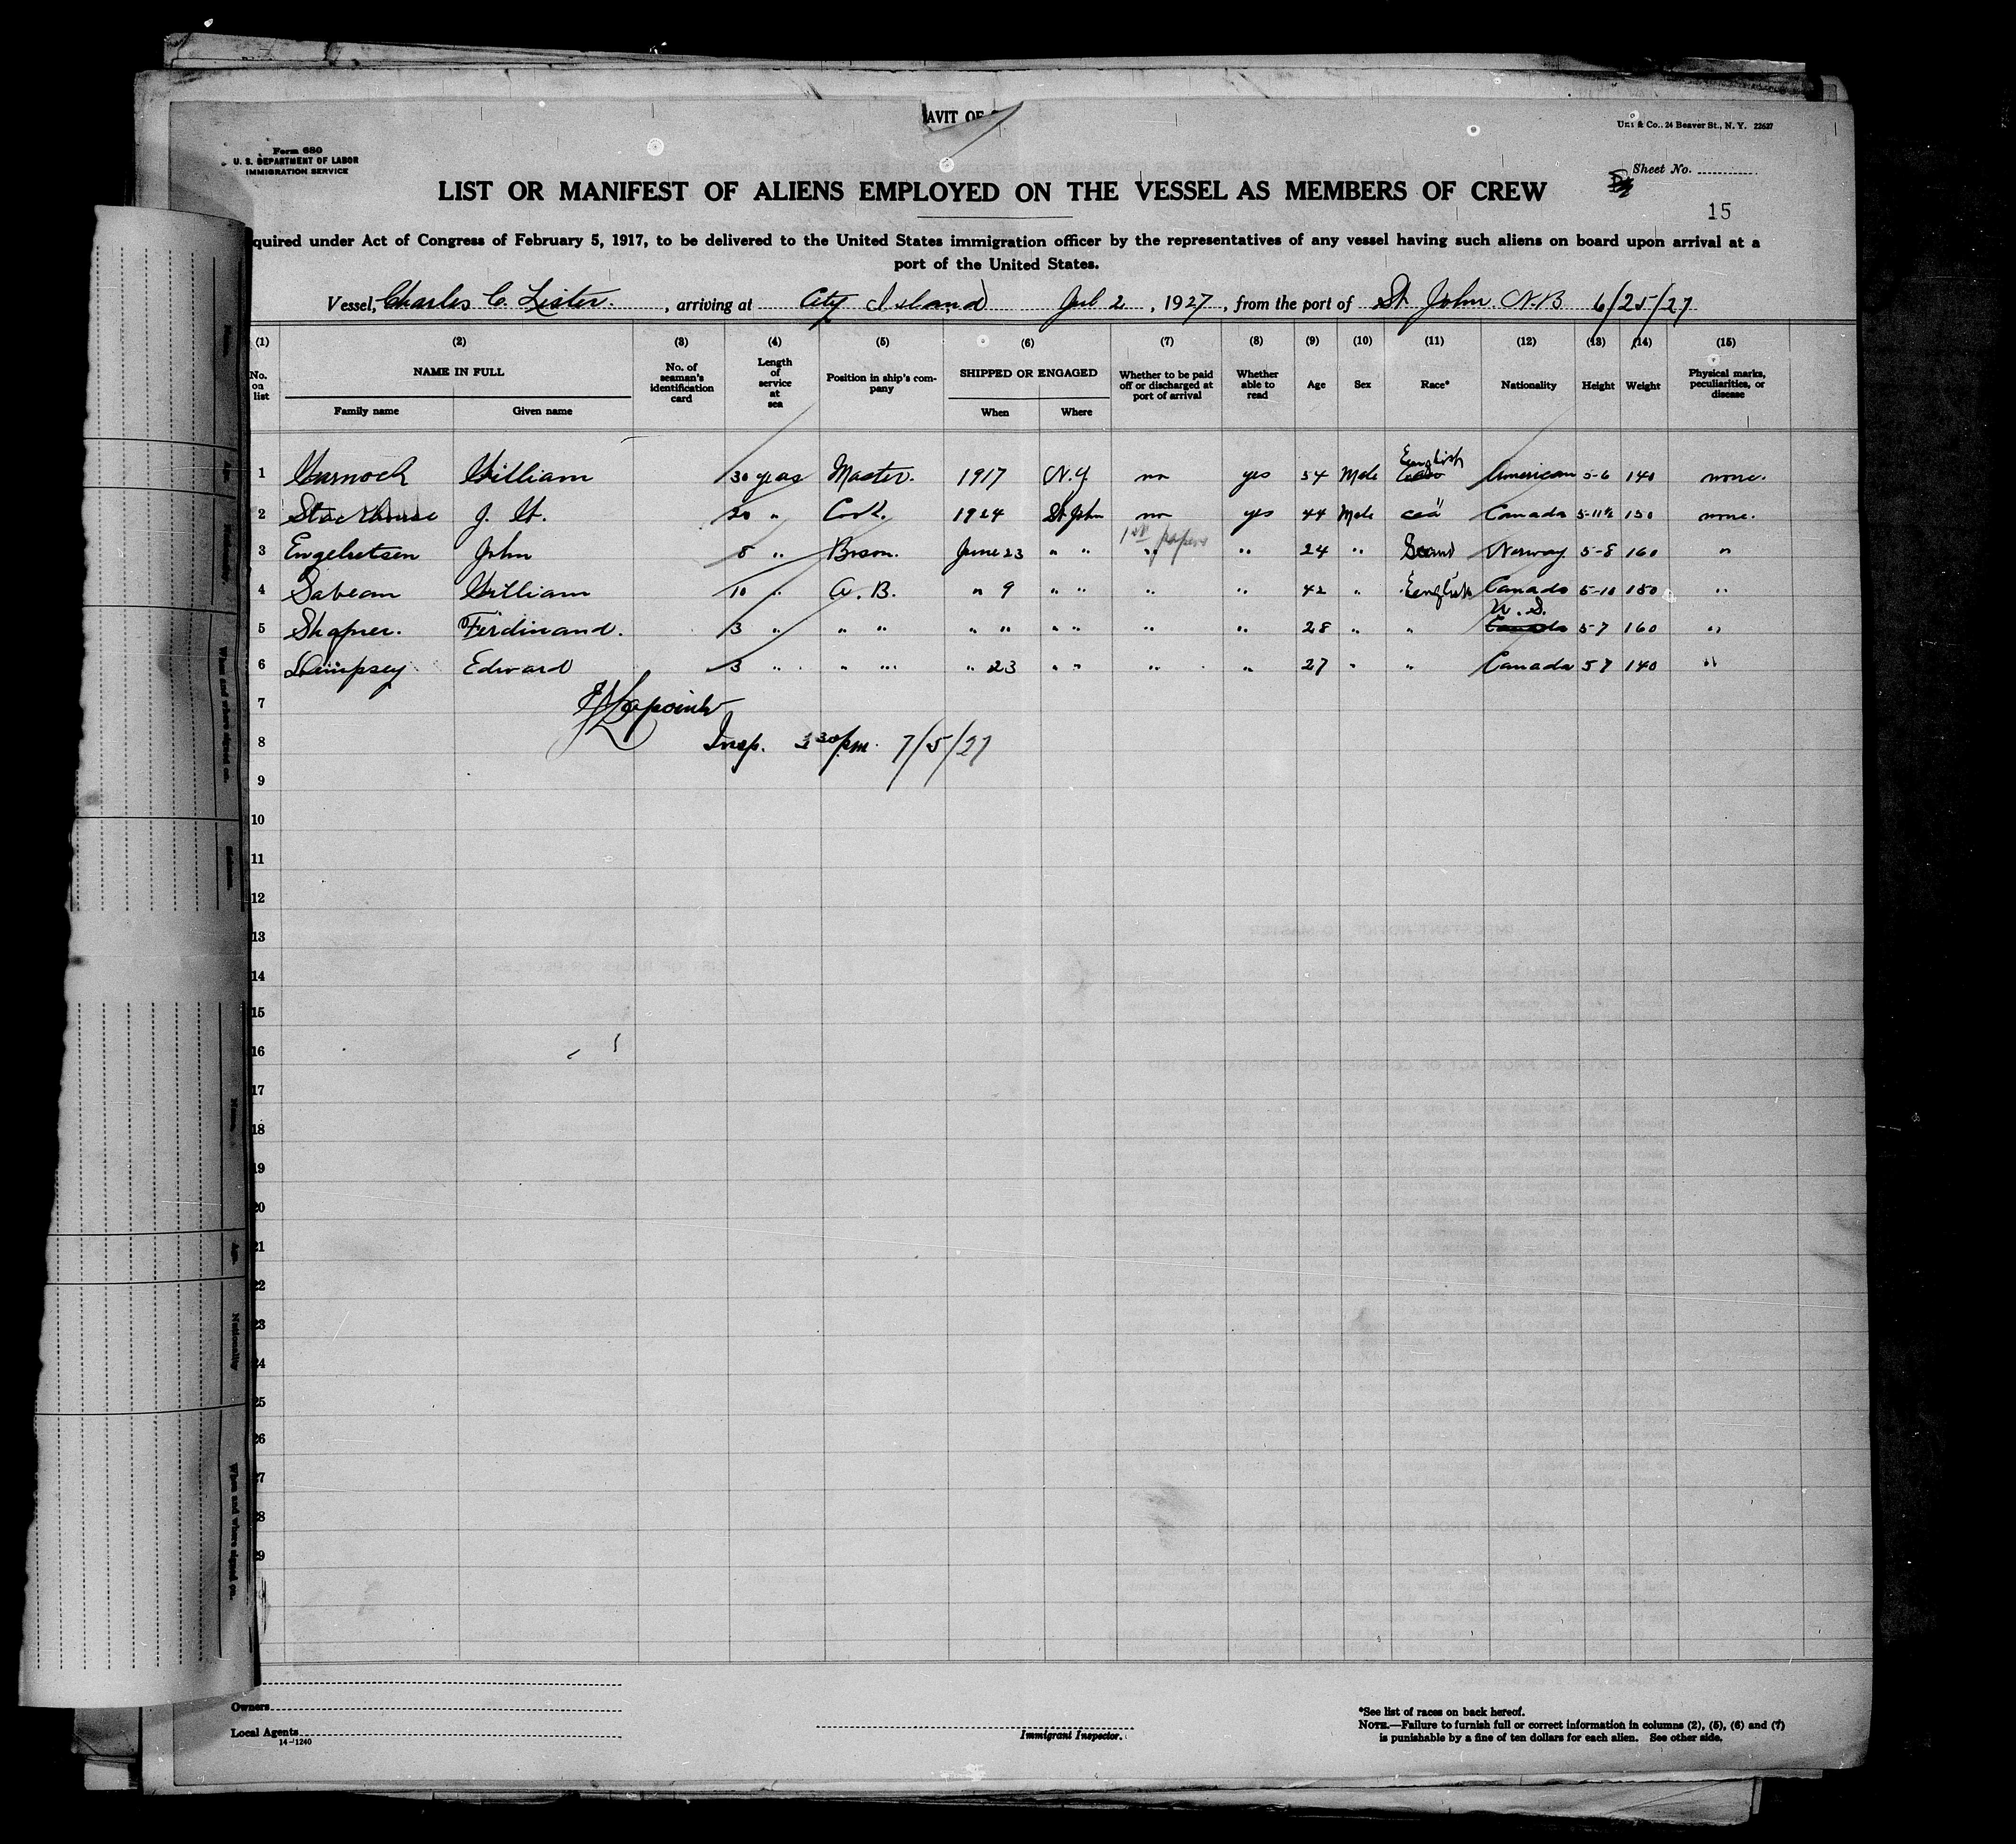 AVIT OF
Unz & Co., 24 Beaver St., N. Y. 22627
Form 680
U. S. DEPARTMENT OF LABOR
IMMIGRATION SERVICE
Sheet No.
LIST OR MANIFEST OF ALIENS EMPLOYED ON THE VESSEL AS MEMBERS OF CREW
15
quired under Act of Congress of February 5, 1917, to be delivered to the United States immigration officer by the representatives of any vessel having such aliens on board upon arrival at a
port of the United States.
Vessel, Charles C. Lister. , arriving at City Island Jul 2 , 1927 , from the port of St. John N.B 6/25/27
(1) (2) (3) (4) (5) (6) (7) (8) (9) (10) (11) (12) (13) (14) (15)
No. on list NAME IN FULL Family name Given name No. of seaman's identification card Length of service at sea Position in ship's company SHIPPED OR ENGAGED When Where Whether to be paid off or discharged at port of arrival Whether able to read Age Sex Race* Nationality Height Weight Physical marks, peculiarities, or disease
English
1 William 30 years Master. 1917 N.Y. no yes 54 Male American 5-6 140 none.
2 Stackhouse J. H. 20 " Cook. 1924 St John no yes 44 Male Canada 5-11½ 150 none.
1st papers
3 Engebretsen John 5 " Bosom. June 23 " " " " 24 " Scand Norway 5-8 160 "
4 Sabean William 10 " A. B. " 9 " " " " 42 " English Canada 5-10 150 "
U. S.
5 Shafner. Ferdinand. 3 " " " " " " " " " 28 " " Canada 5-7 160 "
6 Dempsey Edward 3 " " " " 23 " " " " 27 " " Canada 5 7 140 "
7
Lapointe
8 Insp. 3 30 pm. 7/5/27
9
10
11
12
13
14
15
16
17
18
19
20
21
22
23
24
25
26
27
28
29
Owners
Local Agents
14-1240
Immigrant Inspector.
*See list of races on back hereof.
NOTE.—Failure to furnish full or correct information in columns (2), (5), (6) and (7)
is punishable by a fine of ten dollars for each alien. See other side.
Name.
Age.
Nationality
When and where signed on.